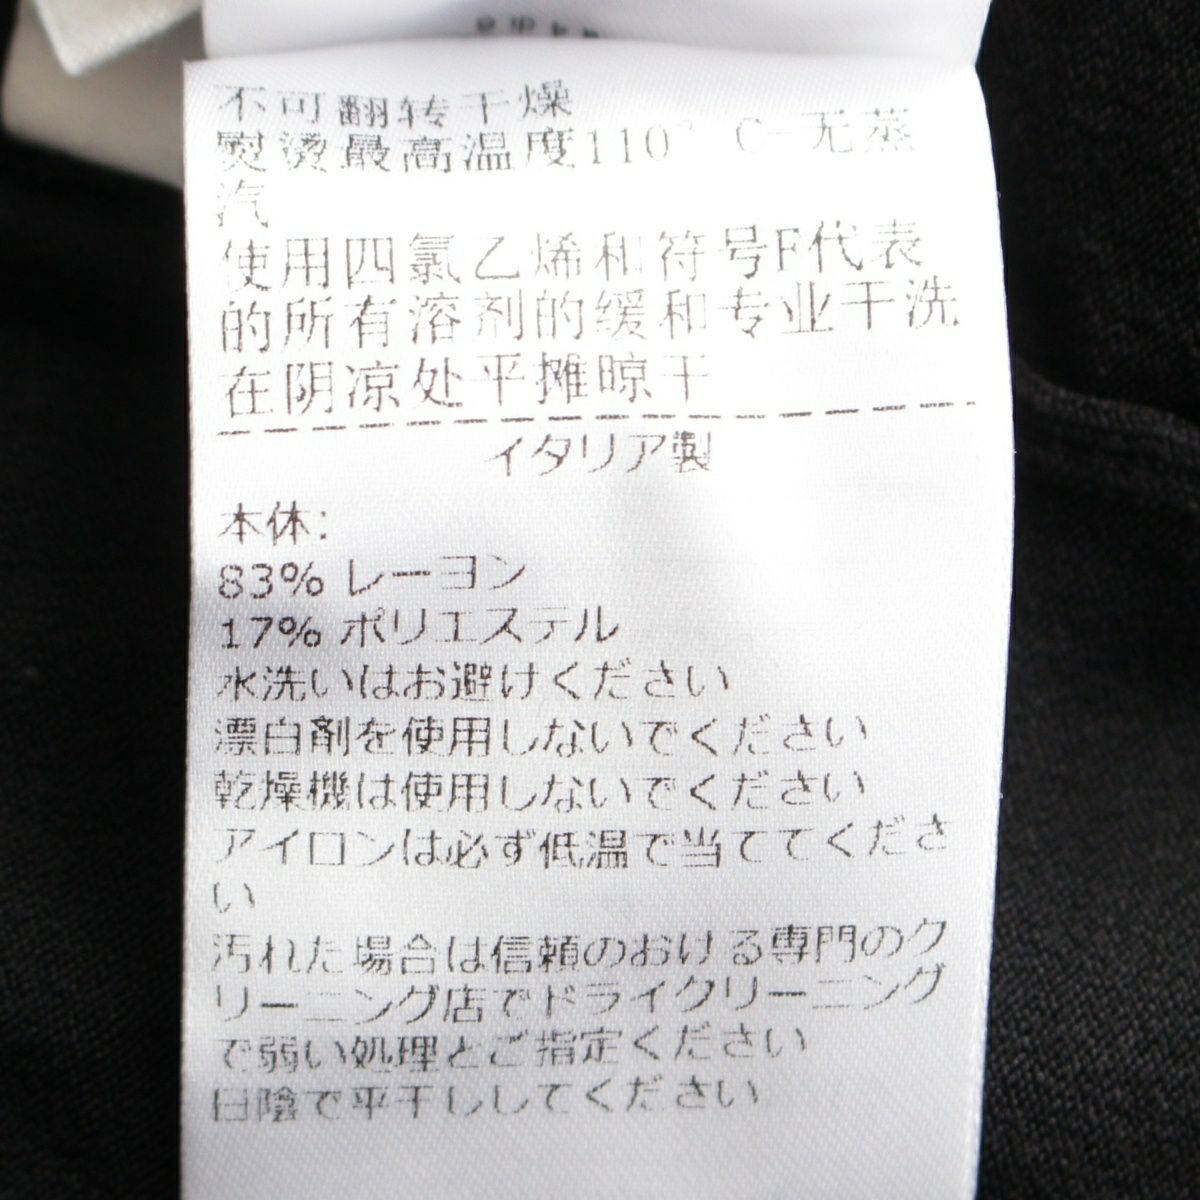 不可翻转干燥
熨烫最高温度110° C-无蒸
汽
使用四氯乙烯和符号F代表
的所有溶剂的缓和专业干洗
在阴凉处平摊晾干
イタリア製
本体:
83% レーヨン
17% ポリエステル
水洗いはお避けください
漂白剤を使用しないでください
乾燥機は使用しないでください
アイロンは必ず低温で当ててくださ
い
汚れた場合は信頼のおける専門のク
リーニング店でドライクリーニング
で弱い処理とご指定ください
日陰で平干ししてください